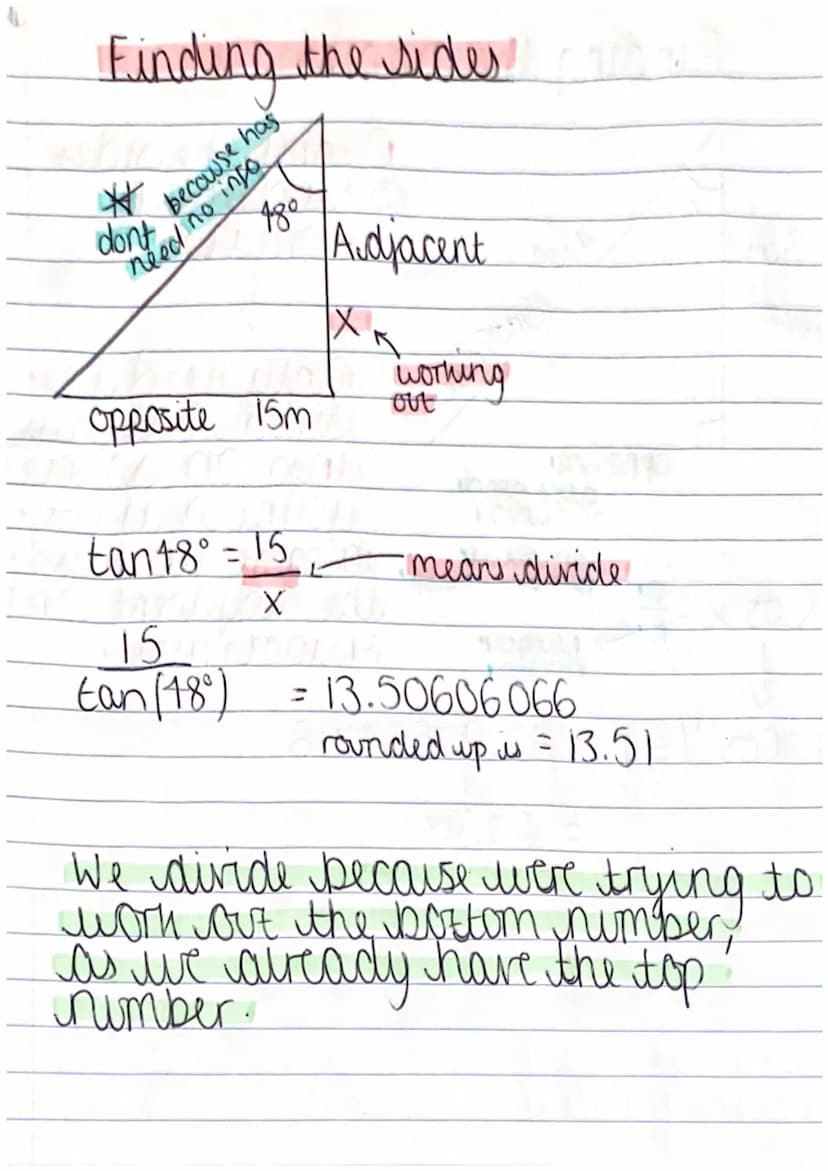 Finding the sides
* because has
dont no info
need
48°
Adjacent
x
working
out
opposite 15m
tan 48° = 15
x
means divide
15
tan(48°) = 13.50606066
rounded up is = 13.51
We divide because were trying to
work out the bottom number,
as we already have the top
number.